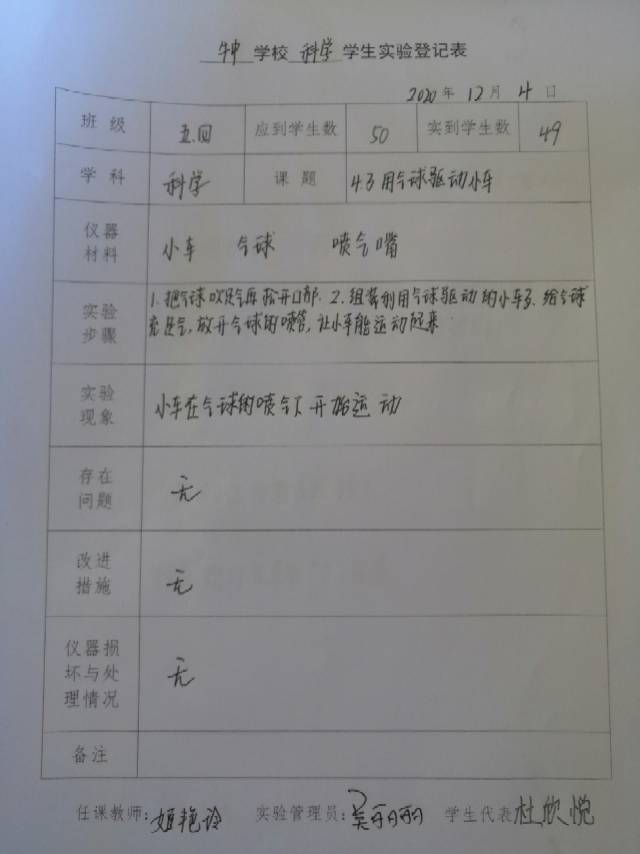 牛中学校科学学生实验登记表
2020年12月4日
班级 五.四 应到学生数 50 实到学生数 49
学科 科学 课题 4.3用气球驱动小车
仪器材料 小车 气球 喷气嘴
实验步骤 1.把气球吹足气再松开口部. 2.组装利用气球驱动的小车3.给气球
充足气,放开气球的喷管,让小车能运动起来.
实验现象 小车在气球的喷气下开始运动
存在问题 无
改进措施 无
仪器损坏与处理情况 无
备注
任课教师:姬艳玲 实验管理员:吴丽丽 学生代表杜欣悦